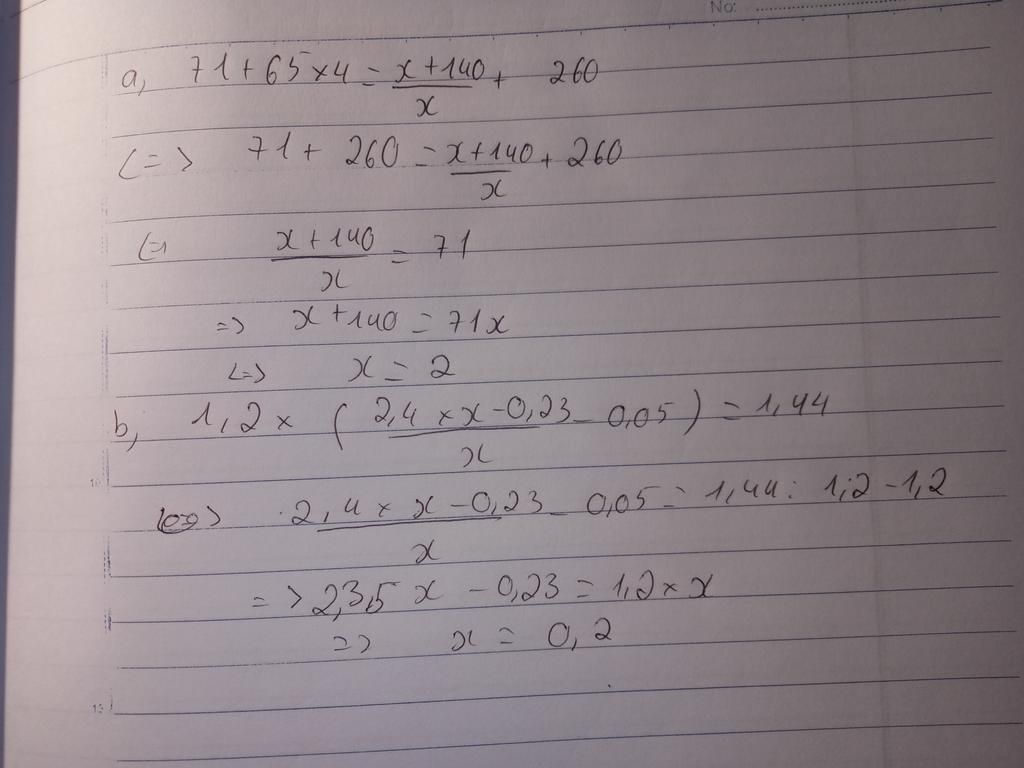 No:
a, 71+65×4 = (x+140)/x + 260
(=> 71 + 260 = (x+140)/x + 260
(= (x+140)/x = 71
=> x+140 = 71x
<=> x = 2
b, 1,2 × ( (2,4 × x - 0,23)/x - 0,05 ) = 1,44
2,4 × x - 0,23 / x - 0,05 = 1,44 : 1,2 - 1,2
=> 2,3,5 x - 0,23 = 1,2 × x
=> x = 0,2